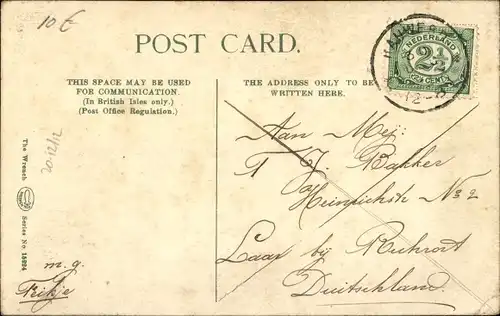 10 €
POST CARD.
THIS SPACE MAY BE USED
FOR COMMUNICATION.
(In British Isles only.)
(Post Office Regulation.)
THE ADDRESS ONLY TO BE
WRITTEN HERE.
NEDERLAND
2½
CENT
20-12/12
The Wrench
Series No.
Aan Mej:
T. J. Bakker
Heinrichstr No 2
Laar bij Ruhrort
Duitschland.
m. g.
Feikje